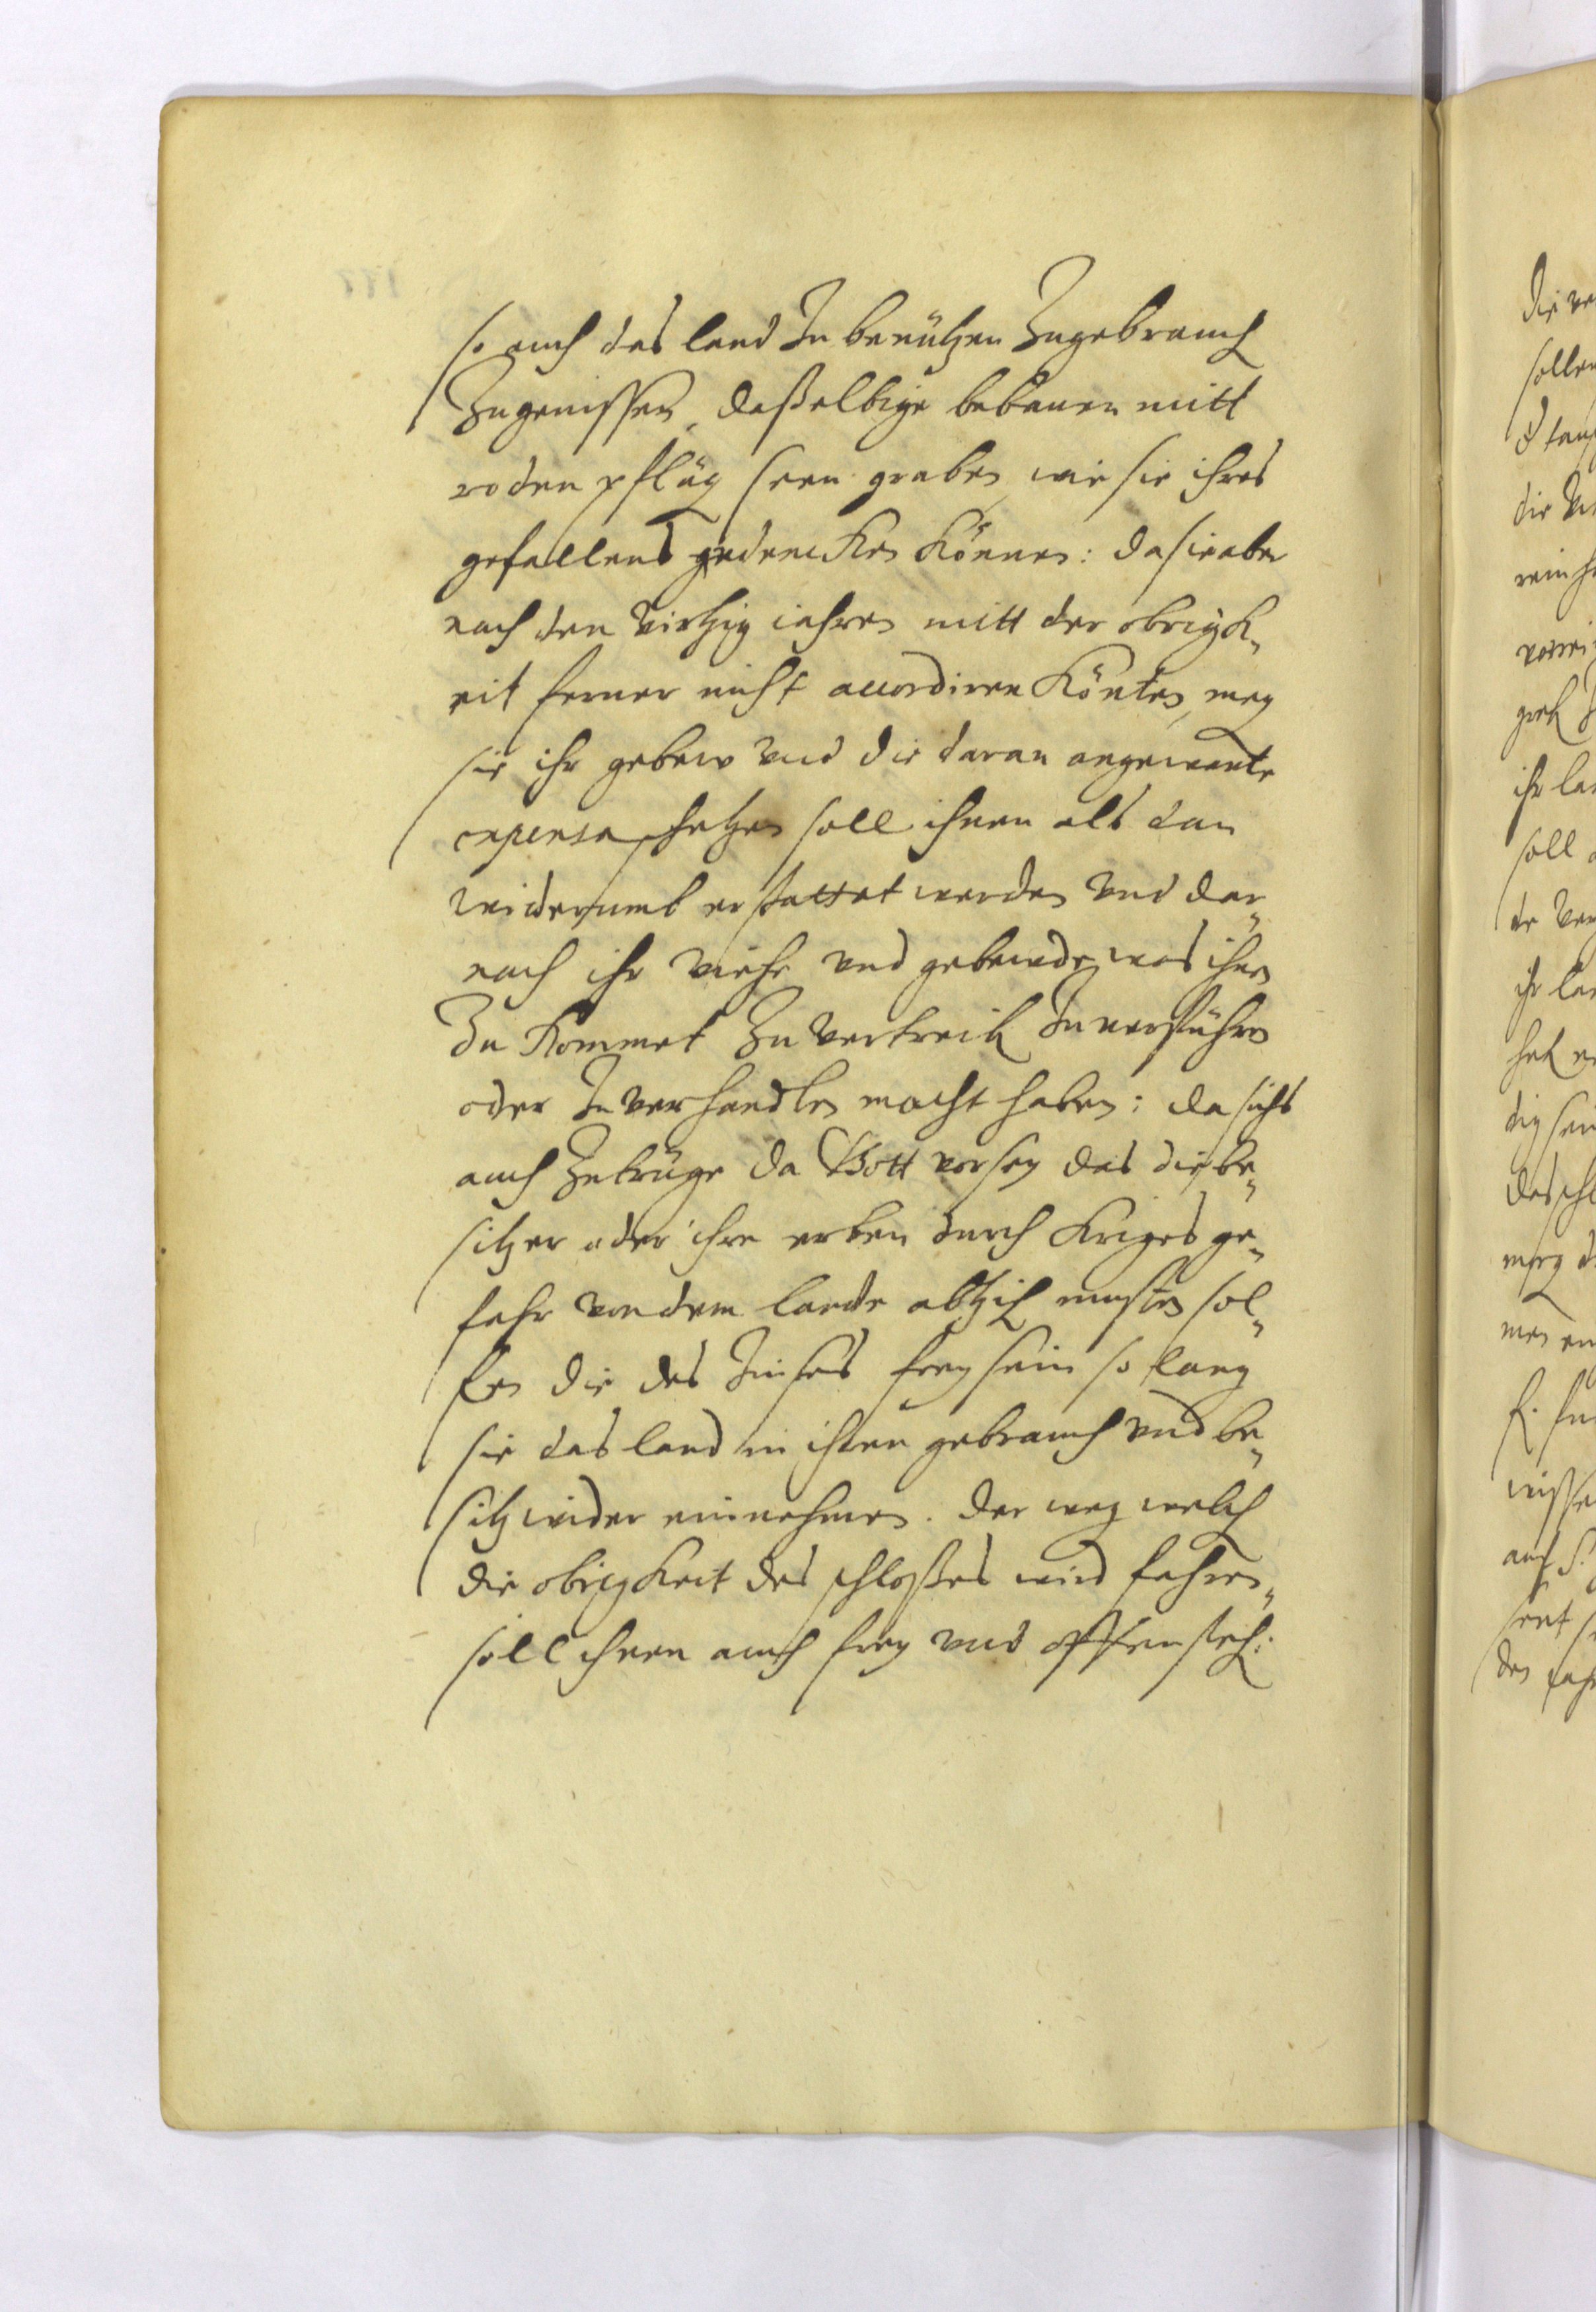 so auch das land Zu benützen Zugebrauch
Zugenissen, daßelbige bebauen mitt
roden pflüg seen graben, wie sie ihres
gefallens gedencken können: da sie aber
nach den virtzig iahren mitt der obrigk„
eit ferner nicht accordiren könten, mag
sie ihr gebew vnd die daran angewente
expensa schetzen soll ihnen als dan
widerumb erstattet werden vnd dar„
nach ihr viehe vnd gebewde was ihnen
Zu kommet Zu vertreib Zu verführen
oder Zu verhandlen macht haben: da sichs
auch Zutrüge da Gott vorsey das die be„
sitzer oder ihre erben durch kriges ge„
fahr von dem lande abtzih musten sol„
len die des Zinses frey sein so lang
sie das land in ihren gebrauch vnd be„
sitz wider einnehmen. der weg welch
die obrigkeit des schloßes wird fahren„
soll ihnen auch frey vnd offen steh: